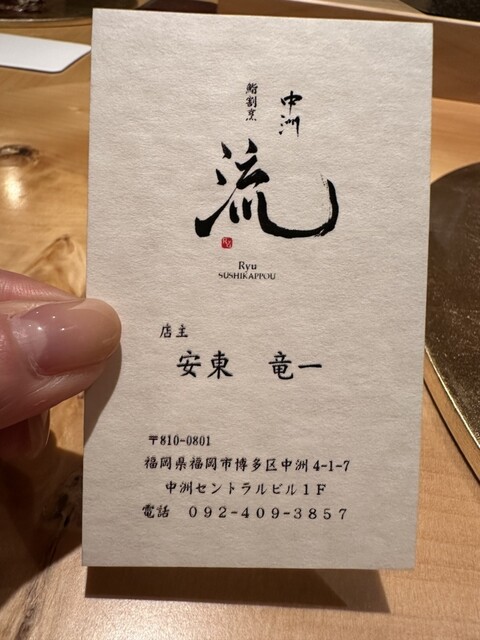 中洲
鮨割烹
流
Ryu
SUSHIKAPPOU
店主
安東 竜一
〒810-0801
福岡県福岡市博多区中洲4-1-7
中洲セントラルビル1F
電話 092-409-3857